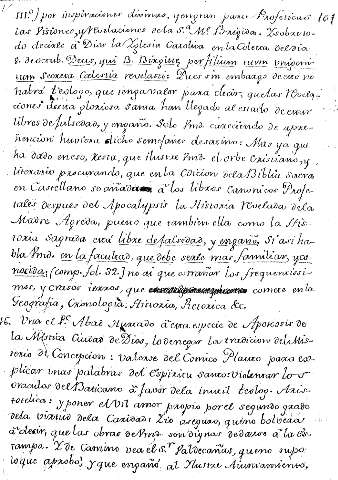 III.º) por inspiraciones divinas, y tengan para Profecias 101
las Visiones, y Revelaciones de la S.ª M.e Brigida. Y sobre to-
do decirle à Dios la Yglesia Catolica en la Colecta del dia
8. de octub. Deus, qui B. Birgitæ per filium tuum unigeni-
tum secreta celestia revelasti. Pues sin embargo de esto no
habrá teologo, que tenga valor para decir, que las Revela-
ciones de esta gloriosa Santa han llegado al estado de estar
libres de falsedad, y engaño. Solo Pmd. careciendo de apre-
hencion huviera dicho semejante desatino: Mas ya que
ha dado en eso, resta, que ilustre Pmd. el orbe Cristiano, y
literario procurando, que en la Edicion de la Biblia Sacra
en Castellano se añada à los libros Canonicos Profe-
tales despues del Apocalypsis la Historia Revelada de la
Madre Agreda, puesto que tambien ella como la His-
toria Sagrada está libre de falsedad, y engaño. Si asi ha-
bla Pmd. en la facultad, que debe serle mas familiar, y co-
nocida; (comp. fol. 32.) no ai que estrañar los frequentissi-
mos, y crasos ierros, que comete en la
Geografia, Cronologia, Historia, Retorica &c.
Una el P.e Abad Yvarado à esta especie de Apoteosis de
la Mystica Ciudad de Dios, lo denegar la tradicion del Mis-
terio de Concepcion: valerse del Comico Plauto para ex-
plicar unas palabras del Espiritu Santo: Violentar los
oraculos del Vaticano à favor de la inutil teolog. Aris-
totelica: y poner el vil amor propio por el segundo grado
de la virtud de la Caridad: Yo aseguro, que no bolverá
à decir, que las obras de Pmd. son dignas de darse à la Es-
tampa. Y de camino vea el S.r Valdecañas, que no supo
lo que aprobó, y que engañó al Ilustre Ayuntamiento,